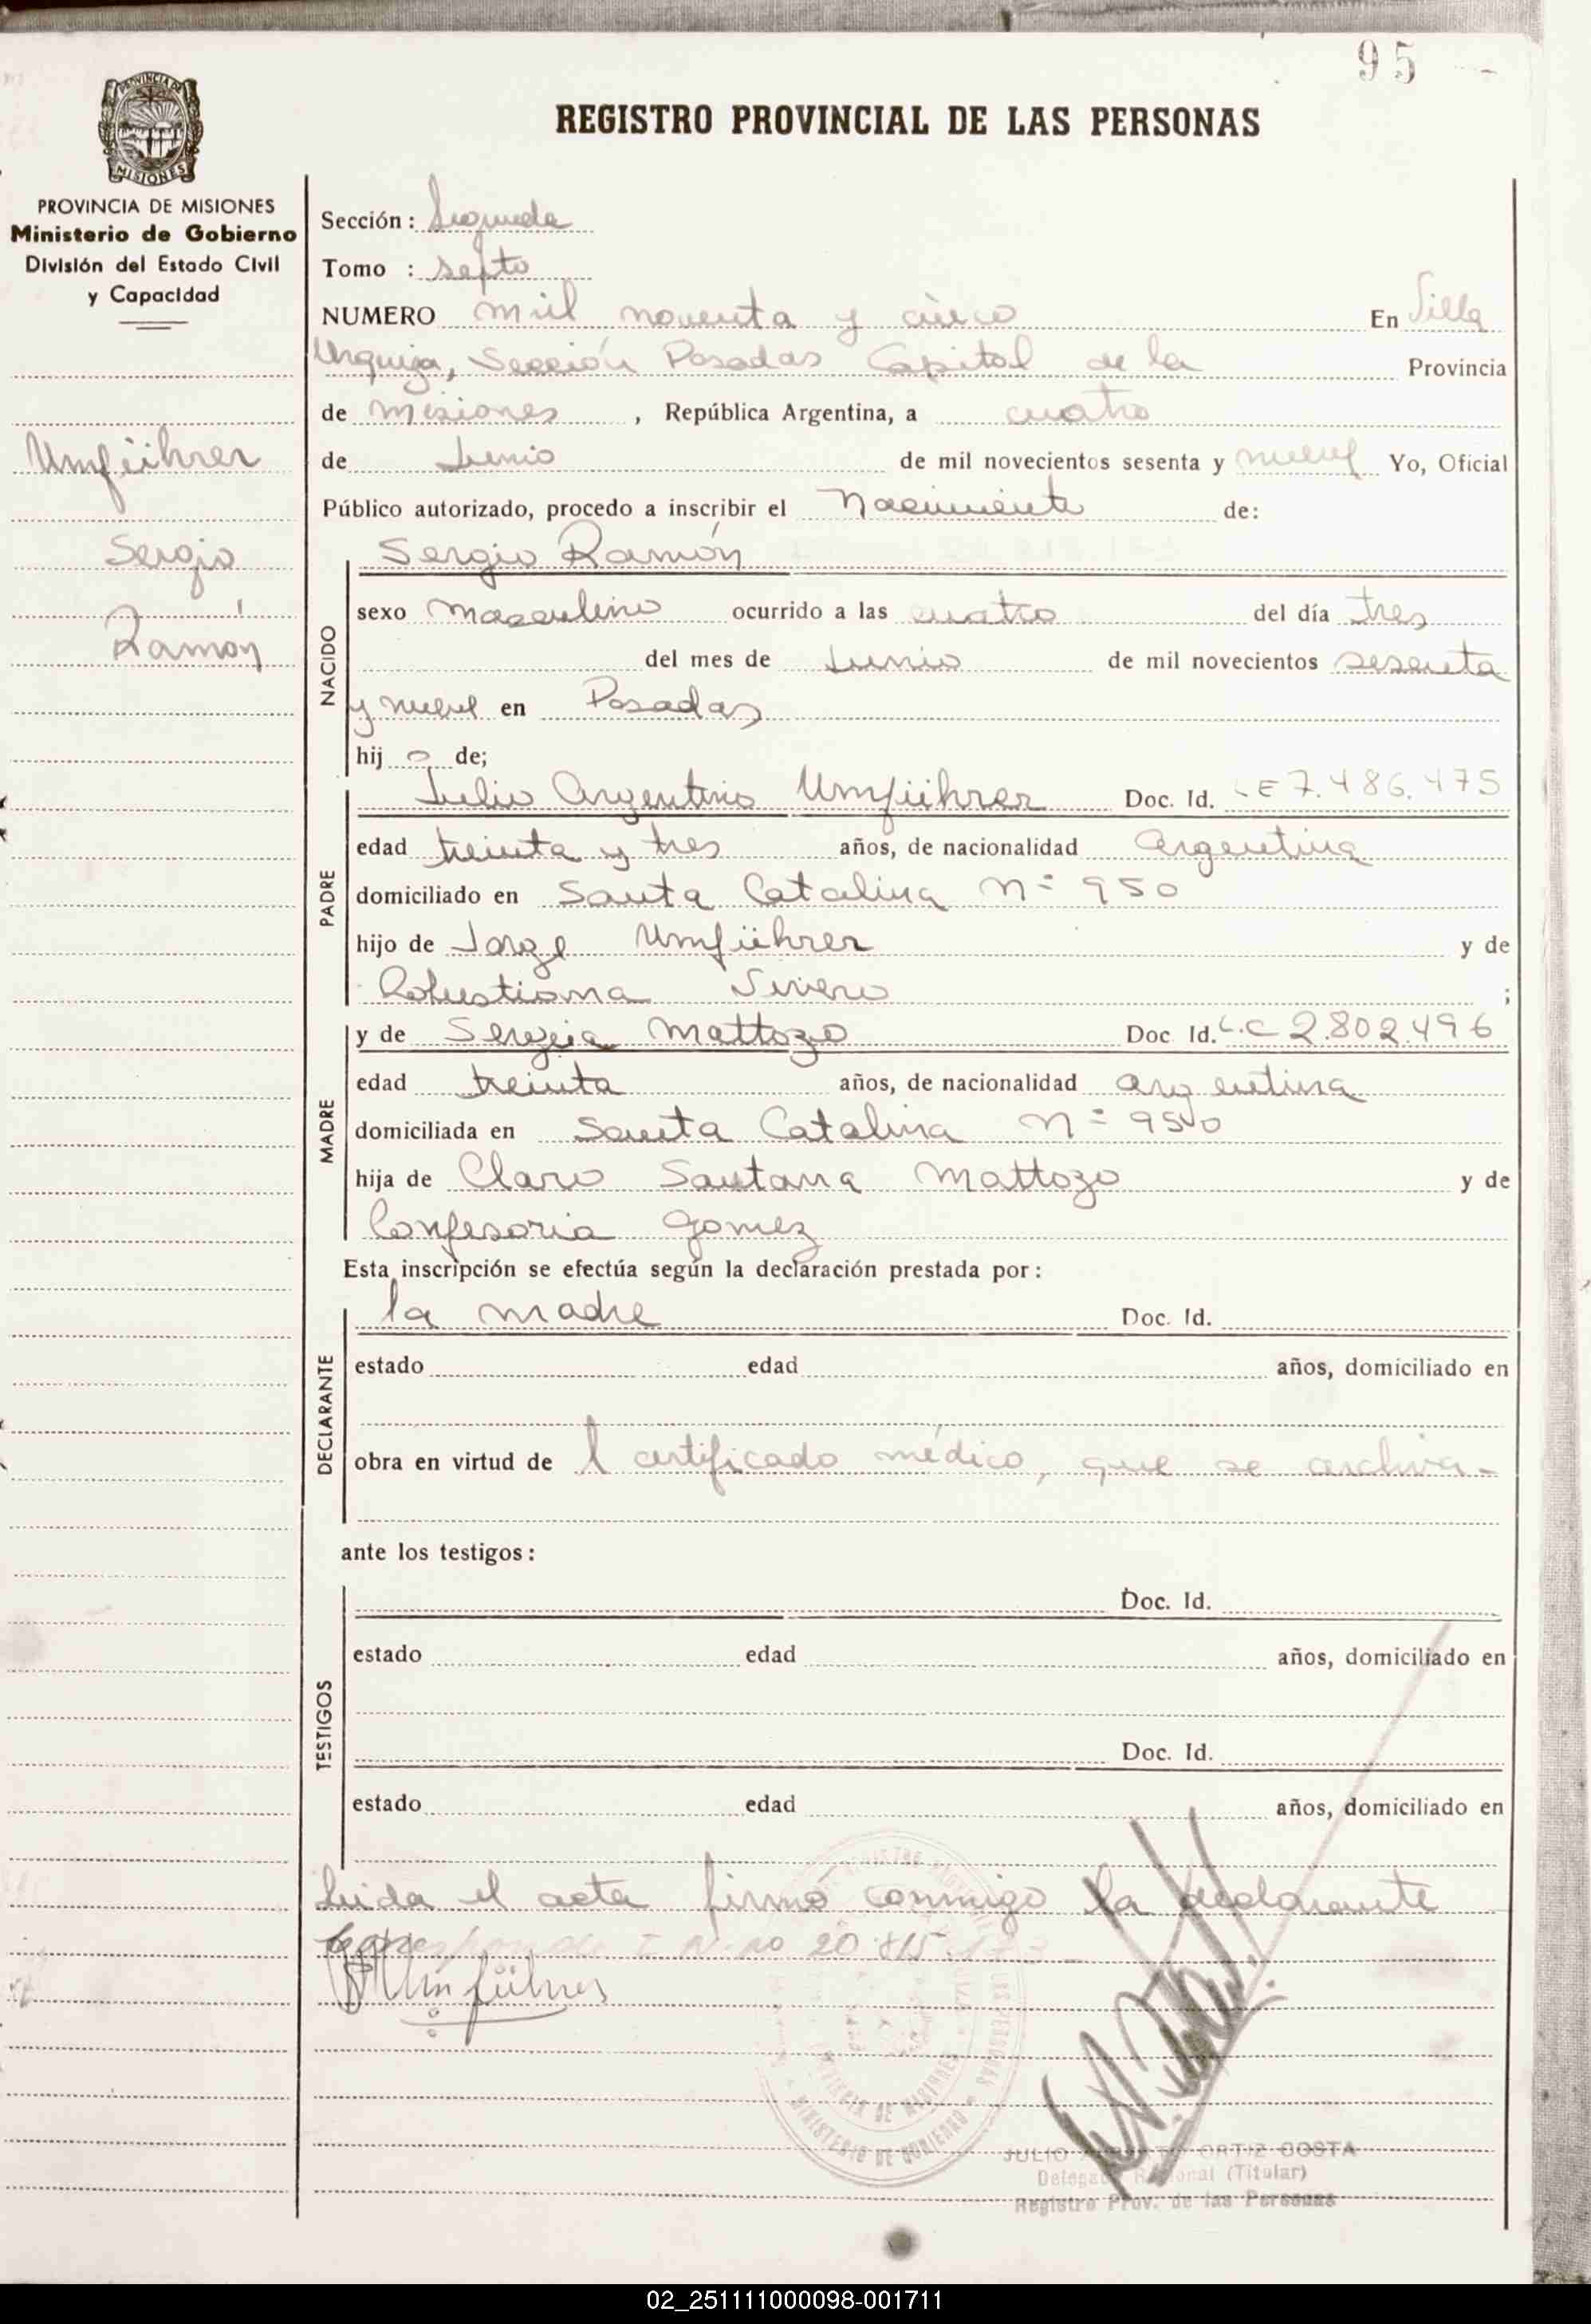 95
REGISTRO PROVINCIAL DE LAS PERSONAS
PROVINCIA DE MISIONES
PROVINCIA DE MISIONES
Ministerio de Gobierno
División del Estado Civil
y Capacidad
Umführer
Sergio
Ramón
Sección: Segunda
Tomo : septo
NUMERO mil noventa y cinco En Villa
Urquiza, Sección Posadas Capital de la Provincia
de Misiones, República Argentina, a cuatro
de Junio de mil novecientos sesenta y nueve Yo, Oficial
Público autorizado, procedo a inscribir el Nacimiento de:
Sergio Ramón
NACIDO
sexo Masculino ocurrido a las cuatro del día tres
del mes de Junio de mil novecientos sesenta
y nueve en Posadas
hijo de;
PADRE
Julio Argentino Umführer Doc. Id. LE 7.486.475
edad treinta y tres años, de nacionalidad Argentina
domiciliado en Santa Catalina Nº 950
hijo de Jorge Umführer y de
Robustiana ;
MADRE
y de Sergia Mattozo Doc Id. L.C 2.802.496
edad treinta años, de nacionalidad argentina
domiciliada en Santa Catalina Nº 950
hija de Claro Santana Mattozo y de
Confesoria Gomez
Esta inscripción se efectúa según la declaración prestada por:
DECLARANTE
la madre Doc. Id.
estado edad años, domiciliado en
obra en virtud de l certificado médico, que se archiva-
ante los testigos:
TESTIGOS
Doc. Id.
estado edad años, domiciliado en
Doc. Id.
estado edad años, domiciliado en
Leida el acta firmó conmigo la declarante
Corresponde 20.815.
Umführer
PROVINCIA DE MISIONES
MINISTERIO DE GOBIERNO
JULIO ORTIZ COSTA
Delegado Regional (Titular)
Registro Prov. de las Personas
02_251111000098-001711